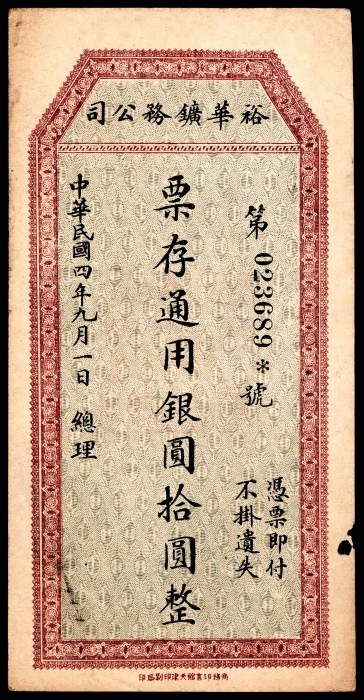 裕華鑛務公司
第 023689 * 號
憑票即付
不掛遺失
票存通用銀圓拾圓整
中華民國四年九月一日 總理
商務印書館天津印刷局印